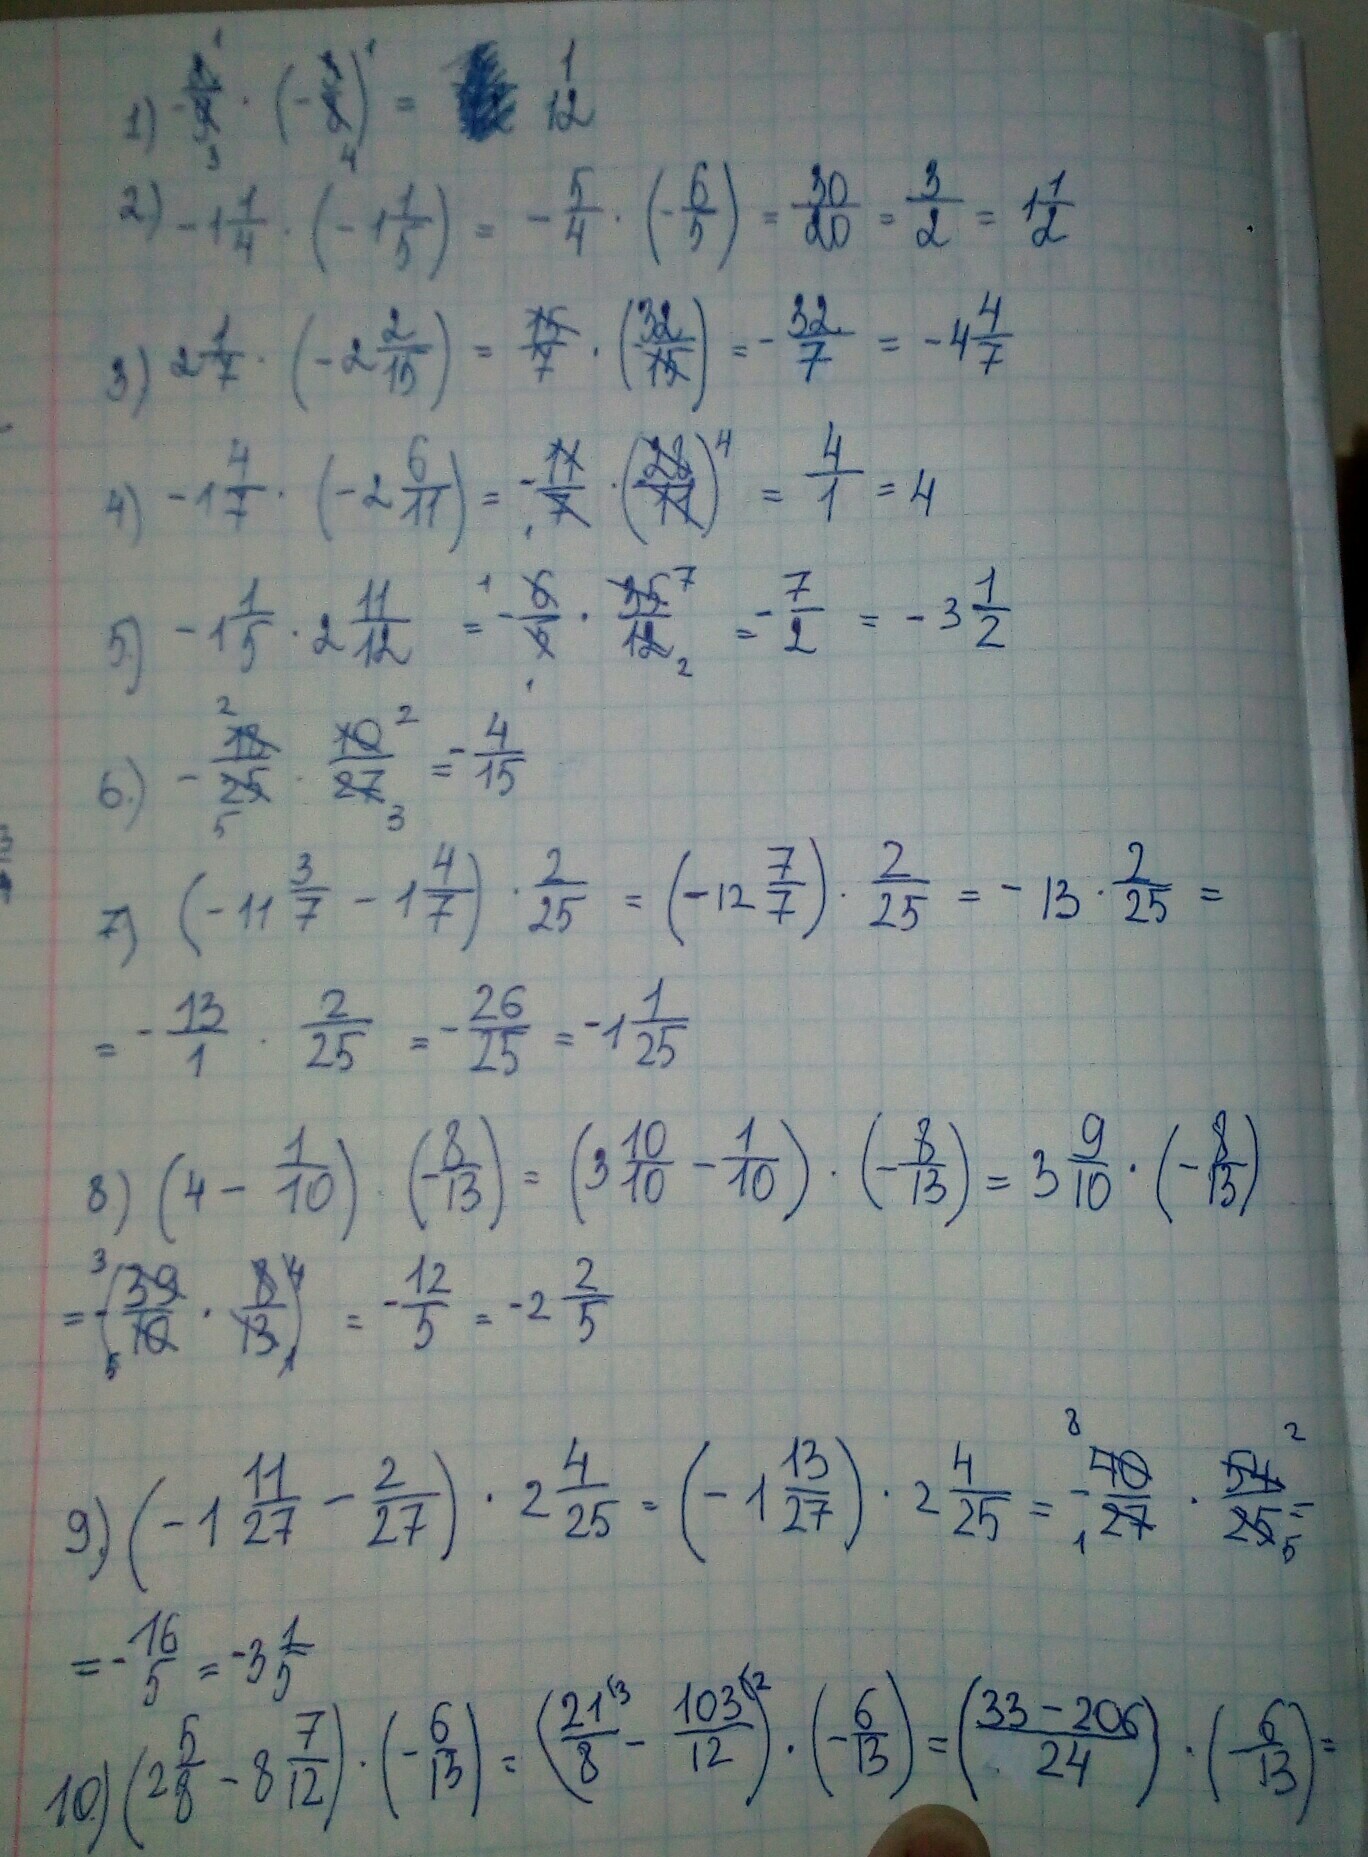 1) · (- ) = 1/12
2) -1 1/4 · (-1 1/5) = -5/4 · (-6/5) = 30/20 = 3/2 = 1 1/2
3) 2 1/7 · (-2 2/15) = 15/7 · (32/15) = -32/7 = -4 4/7
4) -1 4/7 · (-2 6/11) = -11/7 · (28/11) = 4/1 = 4
5.) -1 1/5 · 2 11/12 = -6/5 · 35/12 = -7/2 = -3 1/2
6.) -18/25 · 10/27 = -4/15
7) (-11 3/7 - 1 4/7) · 2/25 = (-12 7/7) · 2/25 = -13 · 2/25 =
= -13/1 · 2/25 = -26/25 = -1 1/25
8) (4 - 1/10) · (-8/13) = (3 10/10 - 1/10) · (-8/13) = 3 9/10 · (-8/13)
= -(39/10 · 8/13) = -12/5 = -2 2/5
9.) (-1 11/27 - 2/27) · 2 4/25 = (-1 13/27) · 2 4/25 = -40/27 · 54/25 =
= -16/5 = -3 1/5
10.) (2 5/8 - 8 7/12) · (-6/13) = (21/8 - 103/12) · (-6/13) = (33-206/24) · (-6/13) =